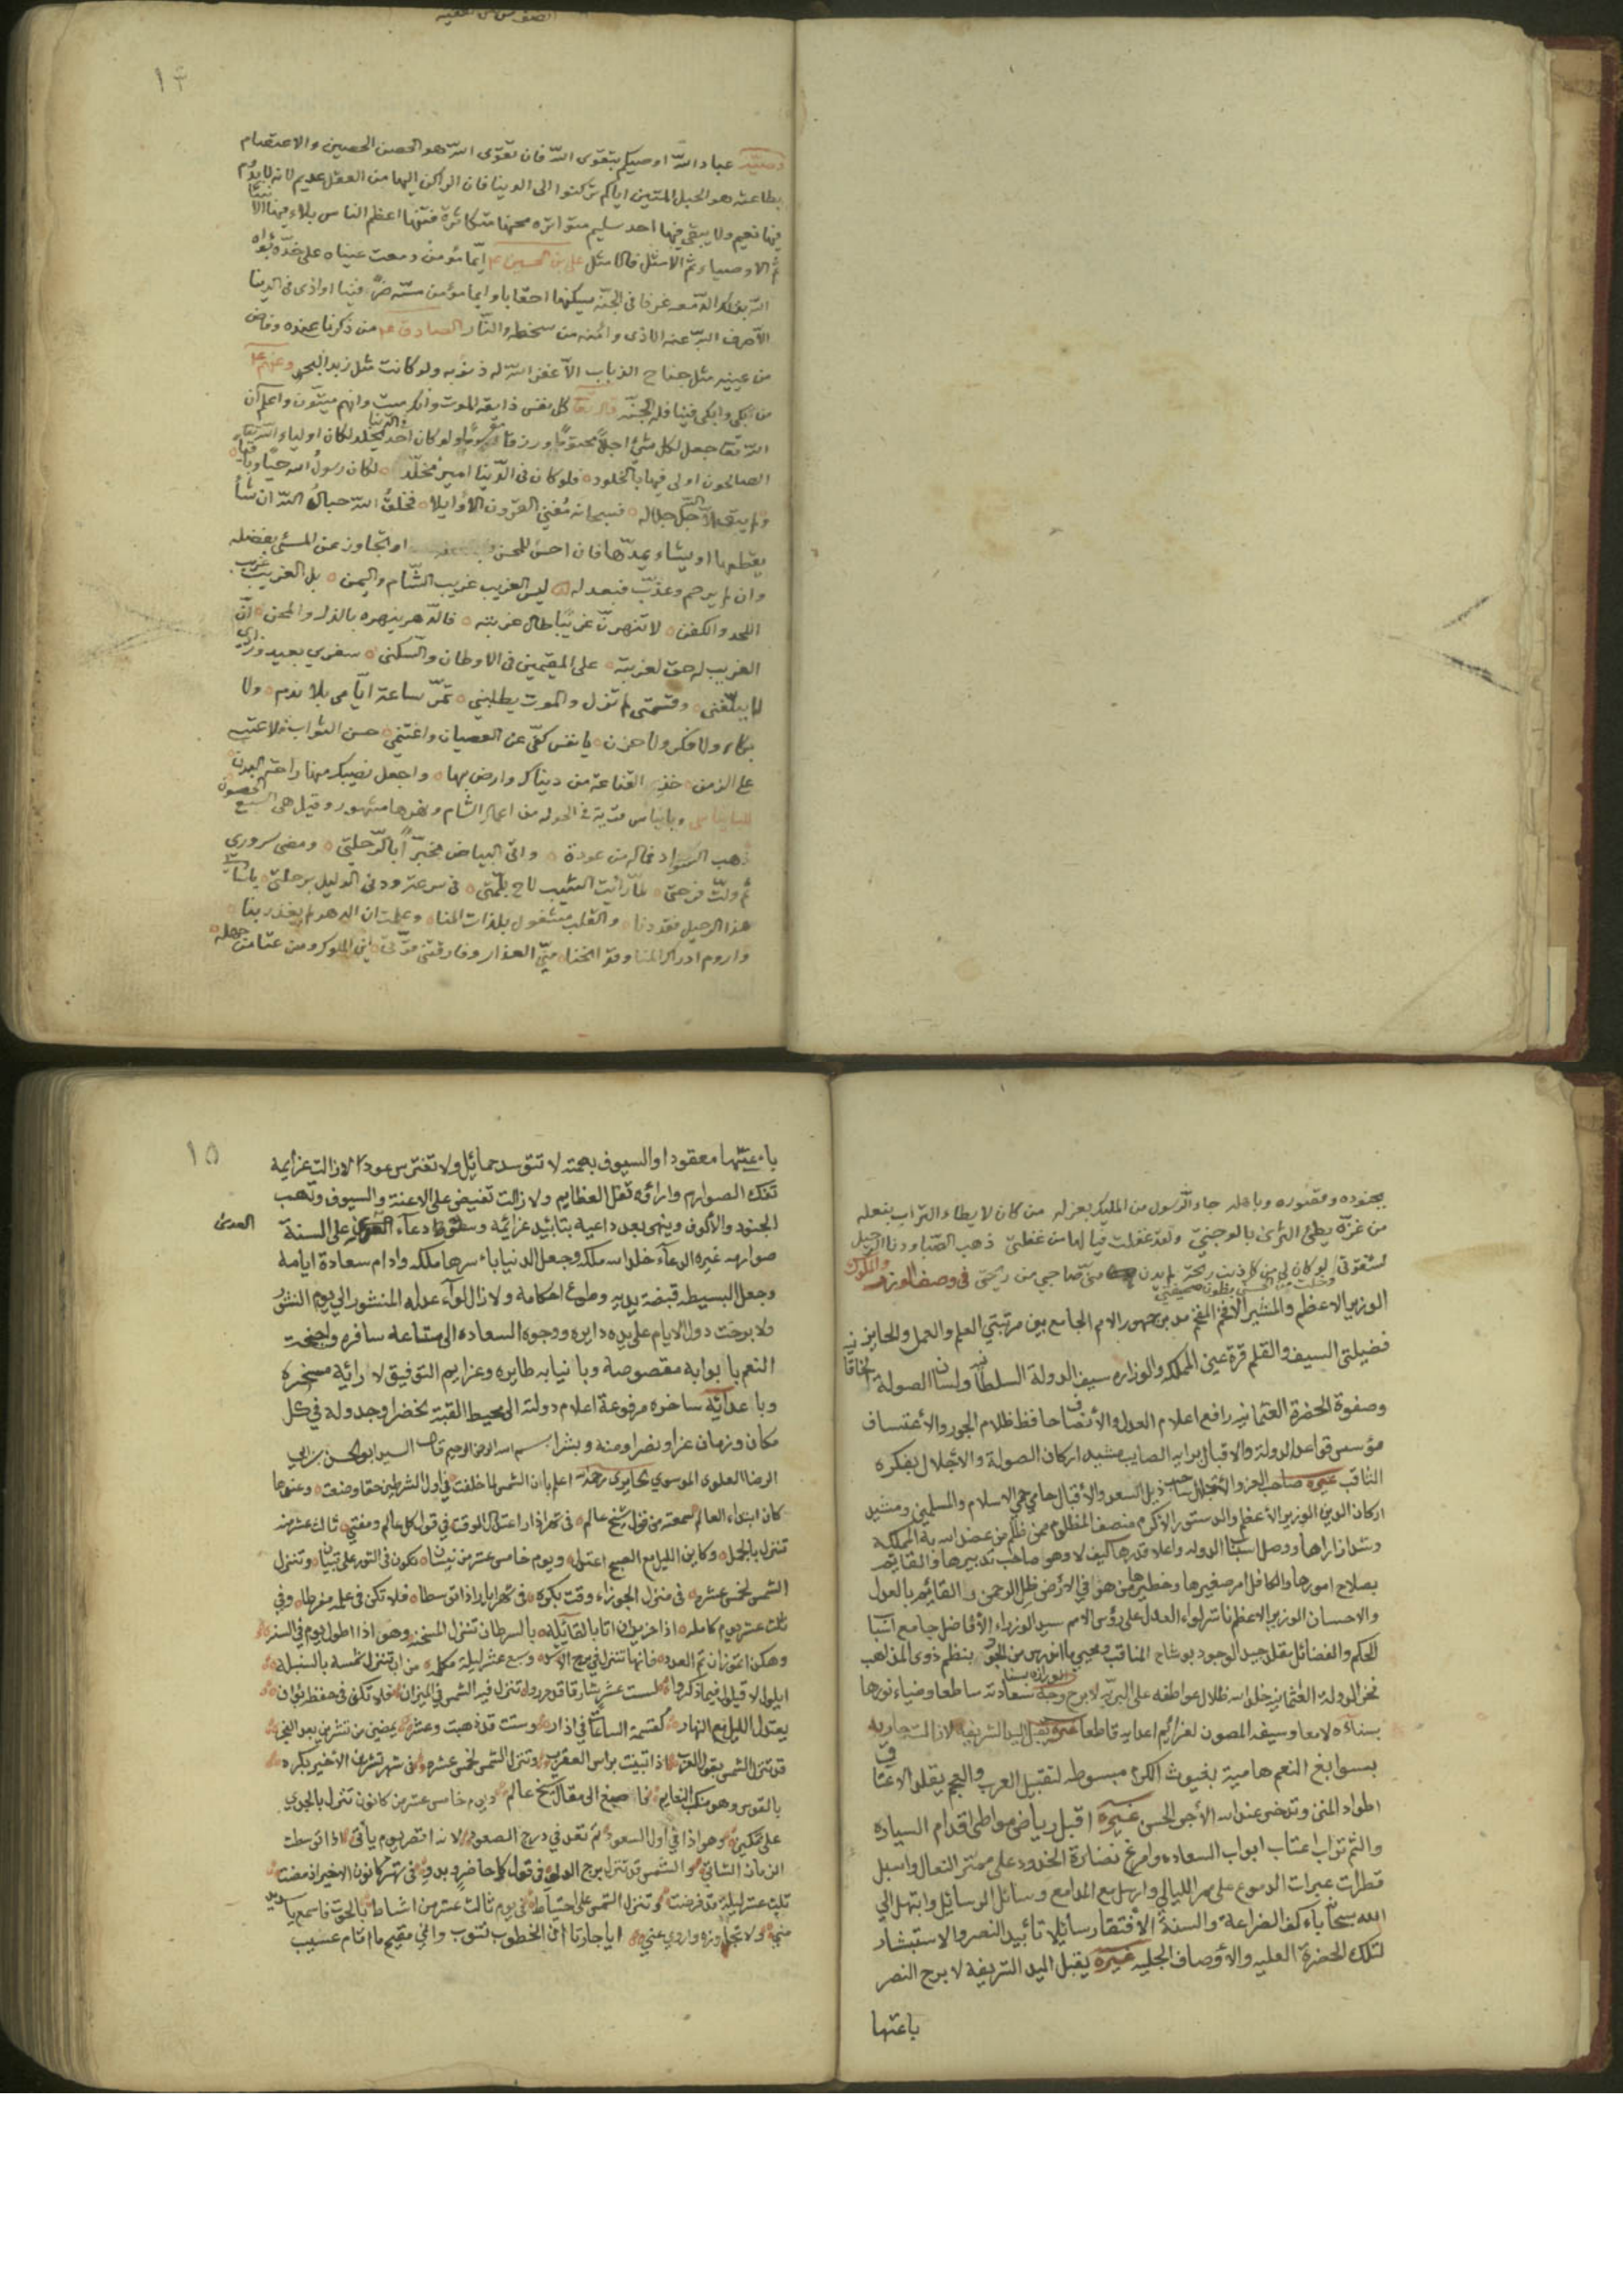 ١٣
وصيّة عباد الله اوصيكم بتقوى الله فان تقوى الله هو الحصن الحصين والاعتصام
بطاعته هو الحبل المتين اياكم تركنوا الى الدينا فان الراكن اليها من العقل عديم لانه لا يدوم
فيها نعيم ولا يبقى فيها احد سليم متواتره محنها متكاثرة فتنها اعظم الناس بلاء فيها الانبيا
ثم الاوصياء ثم الامثل فالامثل علي بن الحسين ايّما مؤمن دمعت عيناه على خدّه بوّاه
الله بتلك الدّمعه غرفا في الجنّه يسكنها احقابا وايما مؤمن مسّه ضرّ فينا او اذى في الدينا
الّا صرف الله عنه الاذى وامنه من سخطه والنّار الصادق من ذكرنا عنده وفاض
من عينيه مثل جناح الذباب الّا غفر الله له ذنوبه ولو كانت مثل زبد البحر وعنهم
من بكى وابكى فينا فله الجنّه قال تعا كل نفس ذايقه الموت وانك ميت وانهم ميتون واعلم ان
الله تعا جعل لكل شيء اجلا محتوما ورزقا مقسوما ولو كان احد في الدّنيا يخلد لكان اولياء الله
الصالحون اولى فيها بالخلود فلو كان في الدّينا امير مخلّد لكان رسول الله حيّا وباقيا
ولم يبق الّا الله جل جلاله فسبحانه مُفني القرون الاوايلا فخلقُ الله حبالُ الله ان شأ
يقطعها او يشاء يمدّها فان احسن للمحسن او اتجاوز عن المسئ بفضله
وان لم يرحم وعذّب فبعد له ليس الغريب غريب الشّام واليمن بل الغريب غريب
اللحد والكفن لا تنهرنّ غريبًا طال غربته فالدّهر ينهره بالذل والمحن انّ
الغريب له حق لغربته على المقيمين في الاوطان والسّكن سفري بعيد وزادي
لا يبلّغني وقسمتي لم تزل والموت يطلبني تمرّ ساعة ايّامي بلا ندم ولا
بكاء ولا فكر ولا حزن يا نفس كفّي عن العصيان واغتنمي حسن الثواب ولا عتب
على الزمن خذِ القناعة من ديناك وارض بها واجعل نصيبك منها راحة البدن
وبانياس قرية في الحوله من اعمال الشام ونهرها مشهور وقيل هي السبع الحصون
ذهب السّواد فما له من عودة واتى البياض مخبّراً بالرّحلتي ومضى سروري
ثم ولّت فرحتي لمّا رأيت الشيب لاح بلمّتي في سرعة ودنى الدليل برحلتي يا سادتي
هذا الرحيل فقد دنا والقلب مشغول بلذات المنا وعلمت ان الدهر لم يغدر بنا
واروم ادراك المنا وقد انحنا منّي العذار وفارقتني قوّتي اين الملوك ومن عتا من جهله
بجنوده وقصوره وباهله جاء الرّسول من المليك بعزله من كان لا يطاء التراب بنعله
من عزّة يطئ الثرى بالوجنتيّ ولقد غفلت فيا لها من غفلتي ذهب الصّبا ودنا الرّحيل
لشقوتي لو كان لي من كل ذنب ريحة لم يدن منّي صاحبي من ريحتي في وصف الوزير والملوك
وخلت من الحسنى بطون صحيفتي
الوزير الاعظم والمشير الافخم المفخم مدبر جمهور الامم الجامع بين مرتبتي العلم والعمل والحايز بين
فضيلتي السيف والقلم قرة عين المملكه والوزاره سيف الدولة السلطانيه ولسان الصولة الخاقا
وصفوة الحضرة العثمانيه رافع اعلام العدل والأنصاف حافظ ظلام الجور والأعتساف
مؤسس قواعد الدولة والاقبال برايه الصايب مشيد اركان الصولة والأجلال بفكره
الثاقب غيره صاحب العز والأجلال ساحب ذيل السعد والأقبال حامي حمي الاسلام والمسلمين ومشيد
اركان الدين الوزير الأعظم والدستور الاكرم منصف المظلوم ممن ظلم من عضد الله به المملكه
وشد ازاراها ووصل اسباب الدوله واعلا قدرها كيف لا وهو صاحب تدبيرها والقايم
بصلاح امورها والكافل امر صغيرها وخطيرها من هو في الارض ظل الرحمن القائم بالعدل
والاحسان الوزير الاعظم ناشر لواء العدل على رؤس الامم سيد الوزراء الأفاضل جامع اشتا
الحكم والفضائل مقلد جيد الوجود بوشاح المناقب ومحيي ما اندرس من الجود بنظم ذوى المذاهب
فخر الدولة العثمانيه خلد الله ظلال عواطفه على البريه لا برح وجه الوزاره بسنا سعادته ساطعا وضياء نورها
بسناءه لامعا وسيفه المصون لغرايم اعدايه قاطعا غيره يقبل اليد الشريفه لازالت جاريه
بسوابغ النعم هامية بغيوث الكرم مبسوطه لتقبيل العرب والعجم يقلد الاعناق
اطواد المنن وتدخر عند الله الأجر الحسن غيره اقبل رياض مواطي اقدام السياده
والثم تراب اعتاب ابواب السعاده وامرغ نضارة الخدود على ممر النعال واسبل
قطرات عبرات الدموع على مر الليالي وارسل مع المدامع وسائل الرسائل وابتهل الي
الله سبحا باكف الضراعة والسنة الأفتقار سائلا تأييد النصر والاستبشار
لتلك الحضرة العليه والاوصاف الجليه غيره يقبل اليد الشريفة لا برح النصر
باعنتها
١٥
باعنتها معقودا والسيوف بهمته لا تتوسد حمائل ولا تفترس عودا لازالت عزايمه
تفك الصوارم واراؤه تفل العظايم ولا زالت تفيض على الاعنة والسيوف وتهب
الجنود والألوف وينهى بعد داعيه بتابيد عزائمه وسقوط دعاء على السنة
العدى
صوارمه غيره الدعاء خلد الله ملكه وجعل الدنيا باءسرها ملكه وادام سعادة ايامه
وجعل البسيطه قبضة يديه وطوع احكامه ولا زال لواء عدله المنشور الي يوم النشور
ولا برحت دول الايام على يده دايره ووجوه السعاده الى ساعه سافره واجنحت
النعم بابوابه مقصوصة وبانيابه طايره وعزايم التوفيق لارائيه مسخره
وباعدائه ساخره مرفوعة اعلام دولته الى محيط القبة لخضرا وجدوله في كل
مكان وزمان عزا ونصرا ومنه وبشرا بسم الله الرحمن الرحيم قال السيد ابو الحسن بن ابي
الرضا العلوي الموسوي الحايري رحمة اعلم بان الشمس لما خلقت في اول الشرطين حقا وضعت وعندها
كان ابتداء العالم سمعته من قول شيخ عالم في شهر اذار اعتدال الوقت في قول كل عالم ومفتي ثالث عشر منه
تنزل بالحمل وكاين الليل مع الصبح اعتدل ويوم خامس عشر من نيسان تكون في الثور على تبيان وتنزل
الشمس لخمس عشره في منزل الجوزاء وقت بكره في شهر ايار اذا توسطا فلا تكن في علمه مفرطا وفي
ثلث عشر يوم كامله اذا حزيران اتا بالقائله بالسرطان تنزل المسخنه وهو اذا اطول يوم في السنه
وهكذا تموز ان تم العدد فانها تنزل في برج الاسد وسبع عشر ليله مكمله من اب تنزل الشمسه بالسنبله
ايلول لا قيل لفيما ذكروا لست عشر شار قا قد حرروا تنزل فيه الشمس في الميزان فلا تكن في حفظه بوان
يعتدل الليل مع النهار كقسمة الساعات في اذار وستت قد ذهبت وعشر يمضين من تشرين بعد الفجر
قد تنزل الشمس بقول العرب اذا تبينت براس العقرب وتنزل الشمس لخمس عشره في شهر تشرين الأخير بكره
بالقوس وهو منكب النعايم فاصغ الى مقال شيخ عالم ويوم خامس عشر من كانون تنزل بالجدي
على تمكين وهو اذا في اول السعود ثم تعد في درج الصعود لانه اقصر يوم يأتي اذا توسطت
الزمان الشاتي والشمس قد تنزل برج الدلو في قول كل حاضر وبدو في شهر كانون الاخير اذ مضت
ثلث عشر ليلة قد فرضت وتنزل الشمس على احتياط في يوم ثالث عشر من اشباط بالحوت فاسمع يا سيدي
مني ولا تجاوزه واروي عني ايا جارتا ان الخطوب تنوب واني مقيم ما اقام عسيب